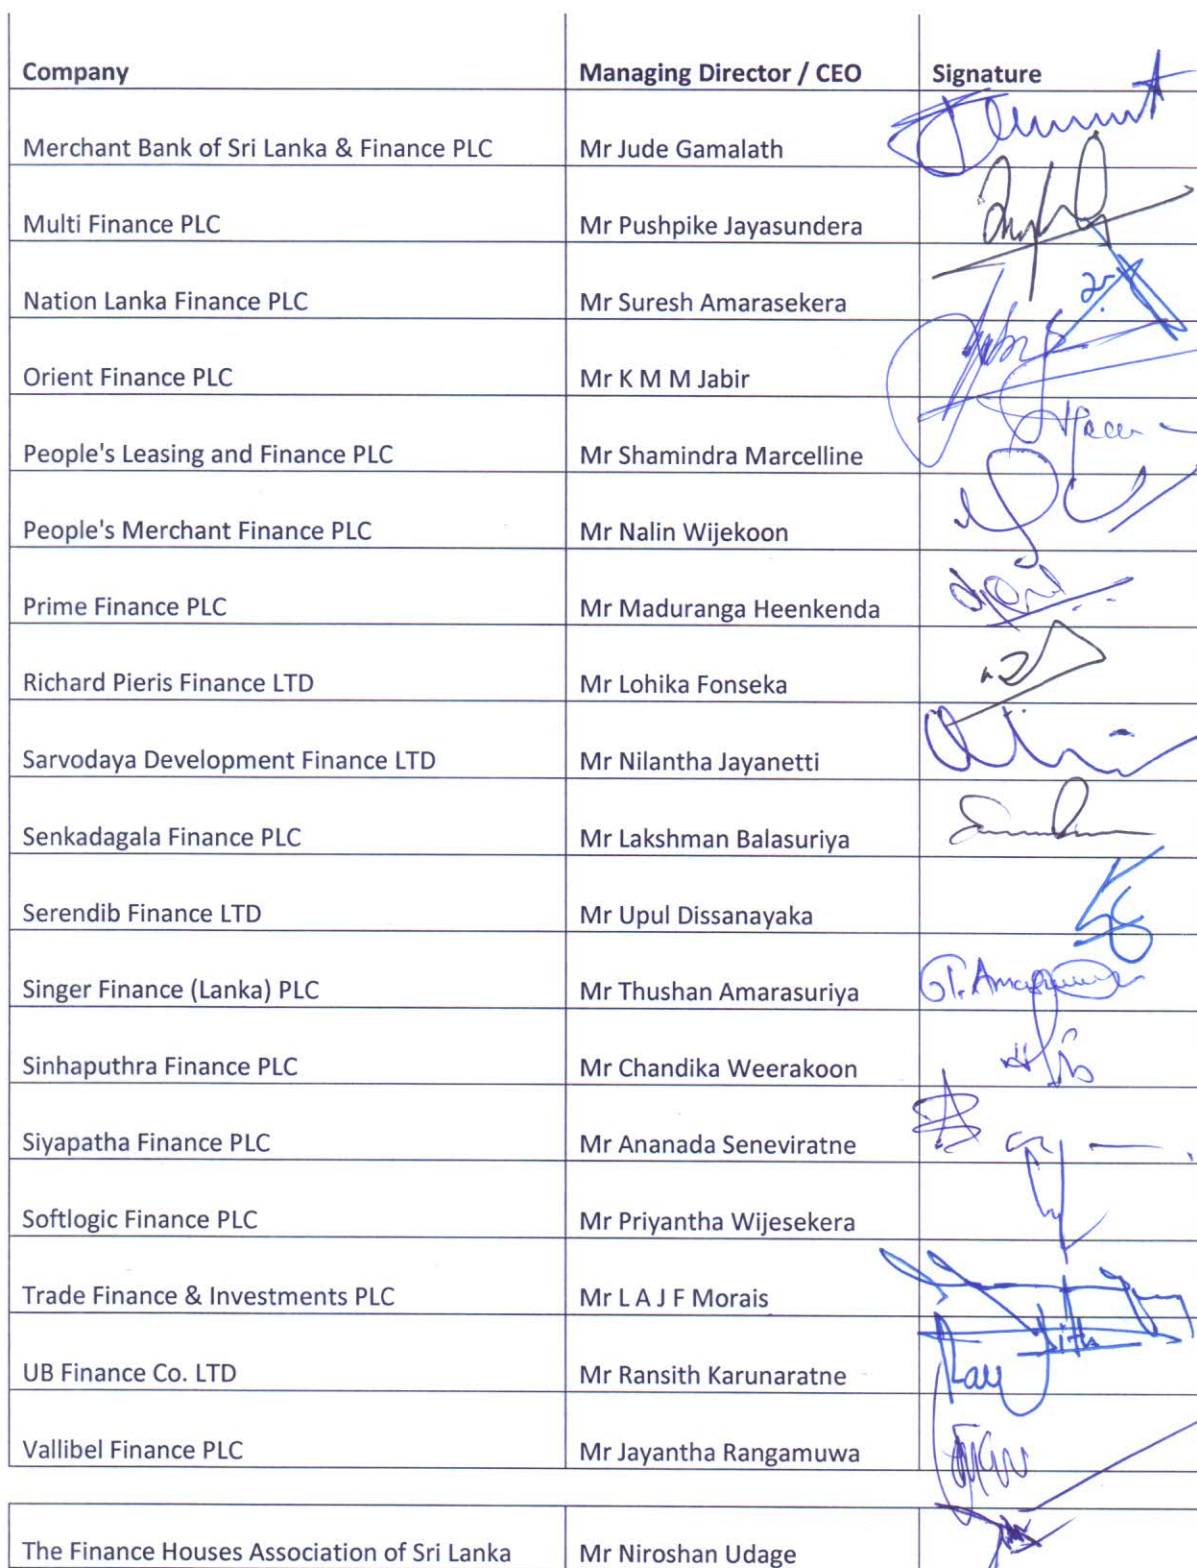 Company Managing Director / CEO Signature
Merchant Bank of Sri Lanka & Finance PLC Mr Jude Gamalath
Multi Finance PLC Mr Pushpike Jayasundera
Nation Lanka Finance PLC Mr Suresh Amarasekera
Orient Finance PLC Mr K M M Jabir
People's Leasing and Finance PLC Mr Shamindra Marcelline
People's Merchant Finance PLC Mr Nalin Wijekoon
Prime Finance PLC Mr Maduranga Heenkenda
Richard Pieris Finance LTD Mr Lohika Fonseka
Sarvodaya Development Finance LTD Mr Nilantha Jayanetti
Senkadagala Finance PLC Mr Lakshman Balasuriya
Serendib Finance LTD Mr Upul Dissanayaka
Singer Finance (Lanka) PLC Mr Thushan Amarasuriya
Sinhaputhra Finance PLC Mr Chandika Weerakoon
Siyapatha Finance PLC Mr Ananada Seneviratne
Softlogic Finance PLC Mr Priyantha Wijesekera
Trade Finance & Investments PLC Mr L A J F Morais
UB Finance Co. LTD Mr Ransith Karunaratne
Vallibel Finance PLC Mr Jayantha Rangamuwa
The Finance Houses Association of Sri Lanka Mr Niroshan Udage